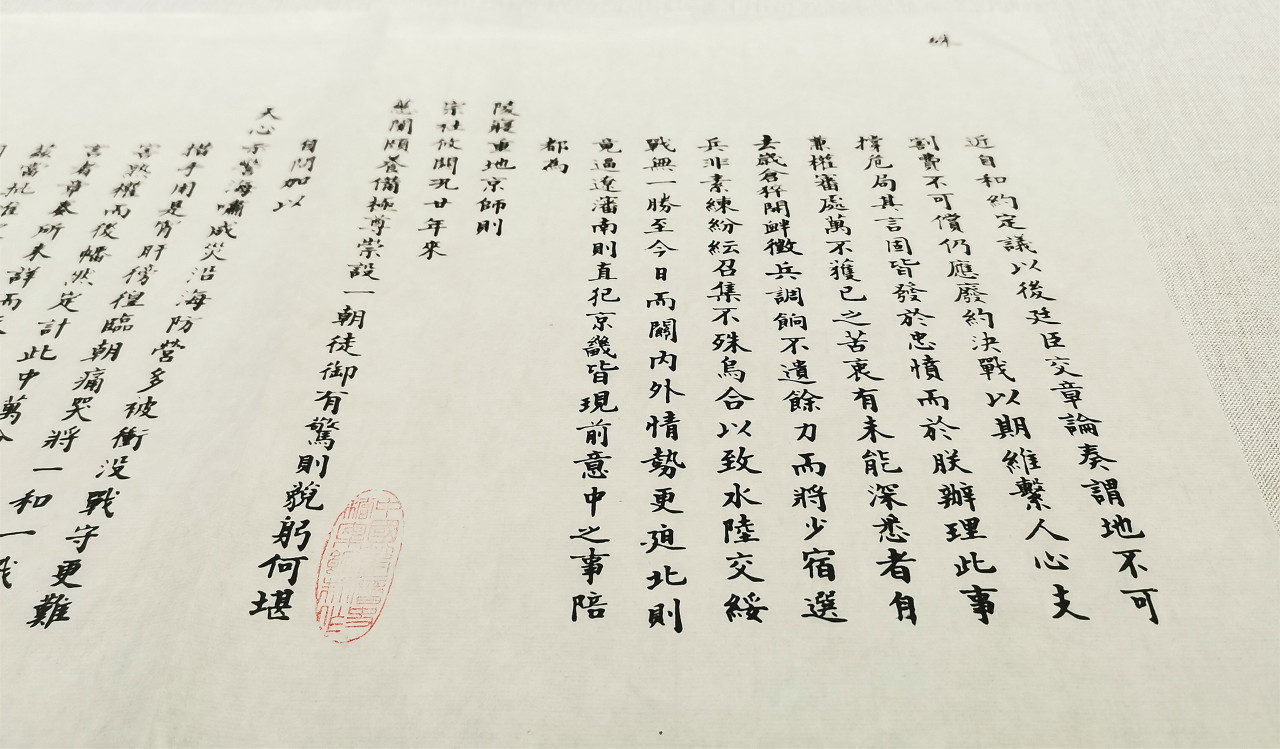 硃
近自和約定議以後廷臣交章論奏謂地不可
割費不可償仍應廢約決戰以期維繫人心支
撐危局其言固皆發於忠憤而於朕辦理此事
兼權審處萬不獲已之苦衷有未能深悉者自
去歲倉猝開衅徵兵調餉不遺餘力而將少宿選
兵非素練紛紜召集不殊烏合以致水陸交綏
戰無一勝至今日而關內外情勢更迫北則
竟逼遼瀋南則直犯京畿皆現前意中之事陪
都為
陵寢重地京師則
宗社攸關況廿年來
慈闈頤養備極尊崇設一朝徒御有驚則藐躬何堪
自問加以
天心示警海嘯成災沿海防營多被衝沒戰守更難
措手用是宵旰傍徨臨朝痛哭將一和一戰
害熟權而後幡然定計此中萬分
言者章奏所未詳而
茲當批准